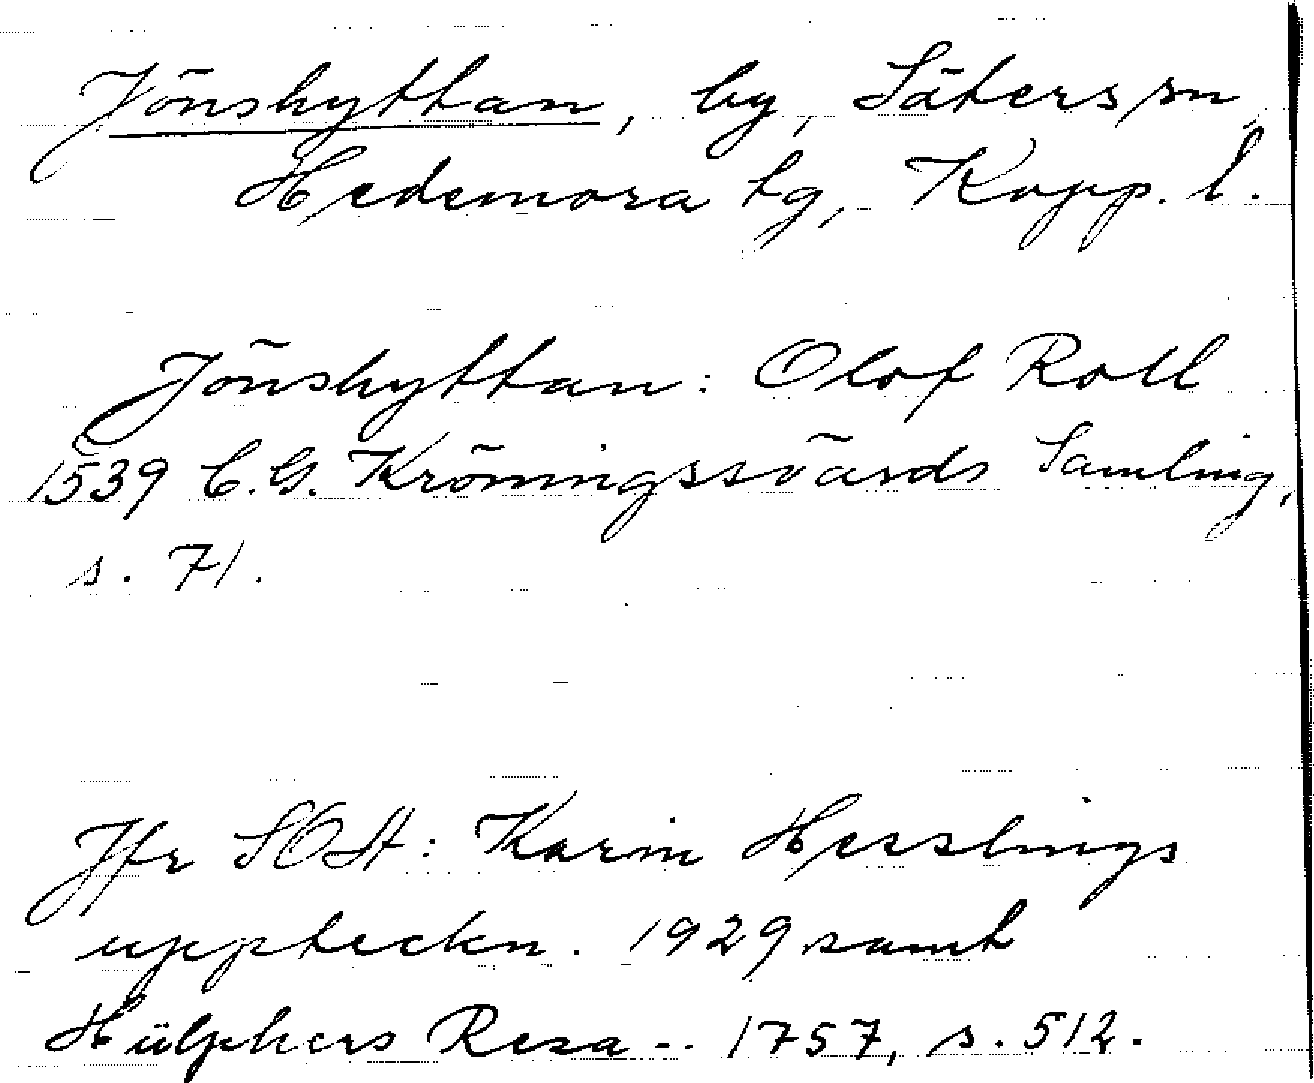 Jönshyttan, by, Säters sn,
Hedemora tg, Kopp. l.
Jönshyttan: Olof Roll
1539 C.G. Kröningssvärds Samling,
s. 71.
Jfr SOA: Karin Hesslings
uppteckn. 1929 samt
Hülphers Resa -- 1757, s. 512.